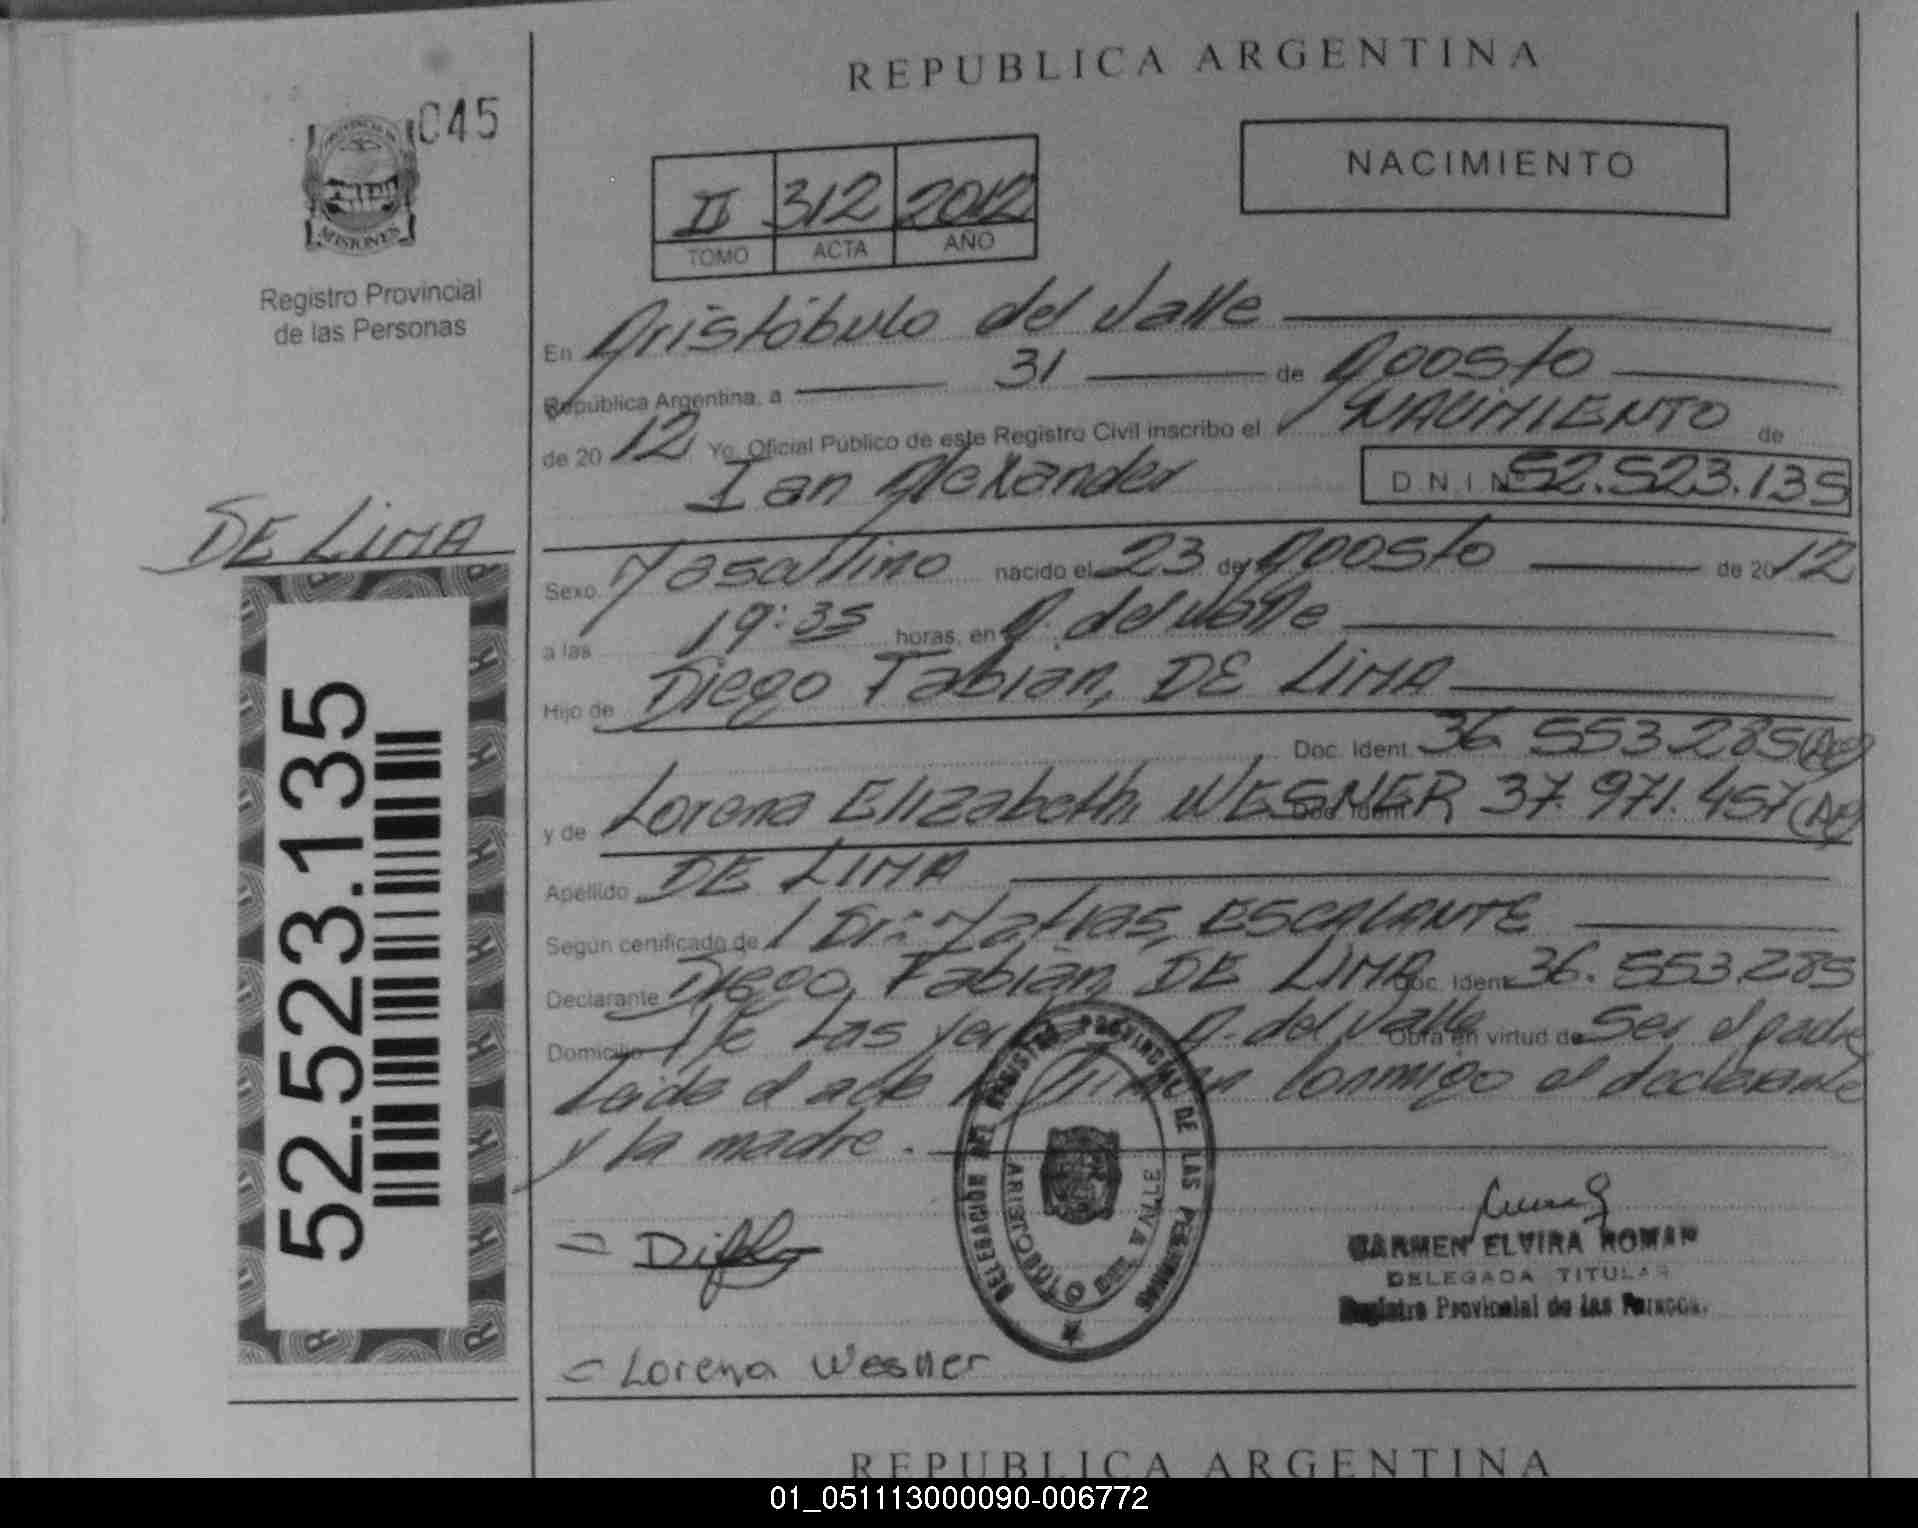 REPUBLICA ARGENTINA
045
PROVINCIA DE
MISIONES
Registro Provincial
de las Personas
II 312 2012
TOMO ACTA AÑO
NACIMIENTO
En Aristóbulo del Valle
República Argentina, a 31 de Agosto
de 2012 Yo, Oficial Público de este Registro Civil inscribo el NACIMIENTO de
Ian Alexander D N I Nº 52.523.135
DE LIMA
Sexo Masculino nacido el 23 de Agosto de 2012
a las 19:35 horas, en A. del Valle
Hijo de Diego Fabian, DE LIMA
Doc. Ident. 36.553.285 (Ar)
y de Lorena Elizabeth, WESNER Doc. Ident. 37.971.457 (Ar)
Apellido DE LIMA
Según certificado de Dr: Matias, ESCALANTE
Declarante Diego Fabian, DE LIMA Doc. Ident. 36.553.285
Domicilio Las A. del Valle Obra en virtud de Ser el padre
Leida el acta firman conmigo el declarante
y la madre.
52.523.135
DELEGACIÓN DEL REGISTRO PROVINCIAL DE LAS PERSONAS
ARISTOBULO DEL VALLE
CARMEN ELVIRA ROMAN
DELEGADA TITULAR
Registro Provincial de las Personas
= Lorena Wesner
REPUBLICA ARGENTINA
01_051113000090-006772